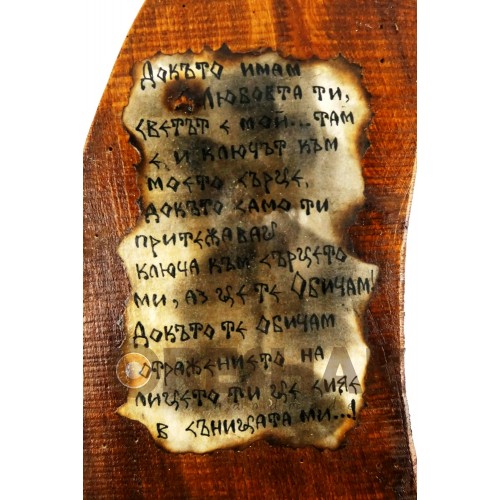 Докъто имам
Любовта ти,
светът е мой...там
е и ключът към
моето сърце,
Докъто само ти
притежаваш
ключа към сърцето
ми, аз ще те Обичам!
Докъто те Обичам
отражението на
лицето ти ще сияе
в сънищата ми...!